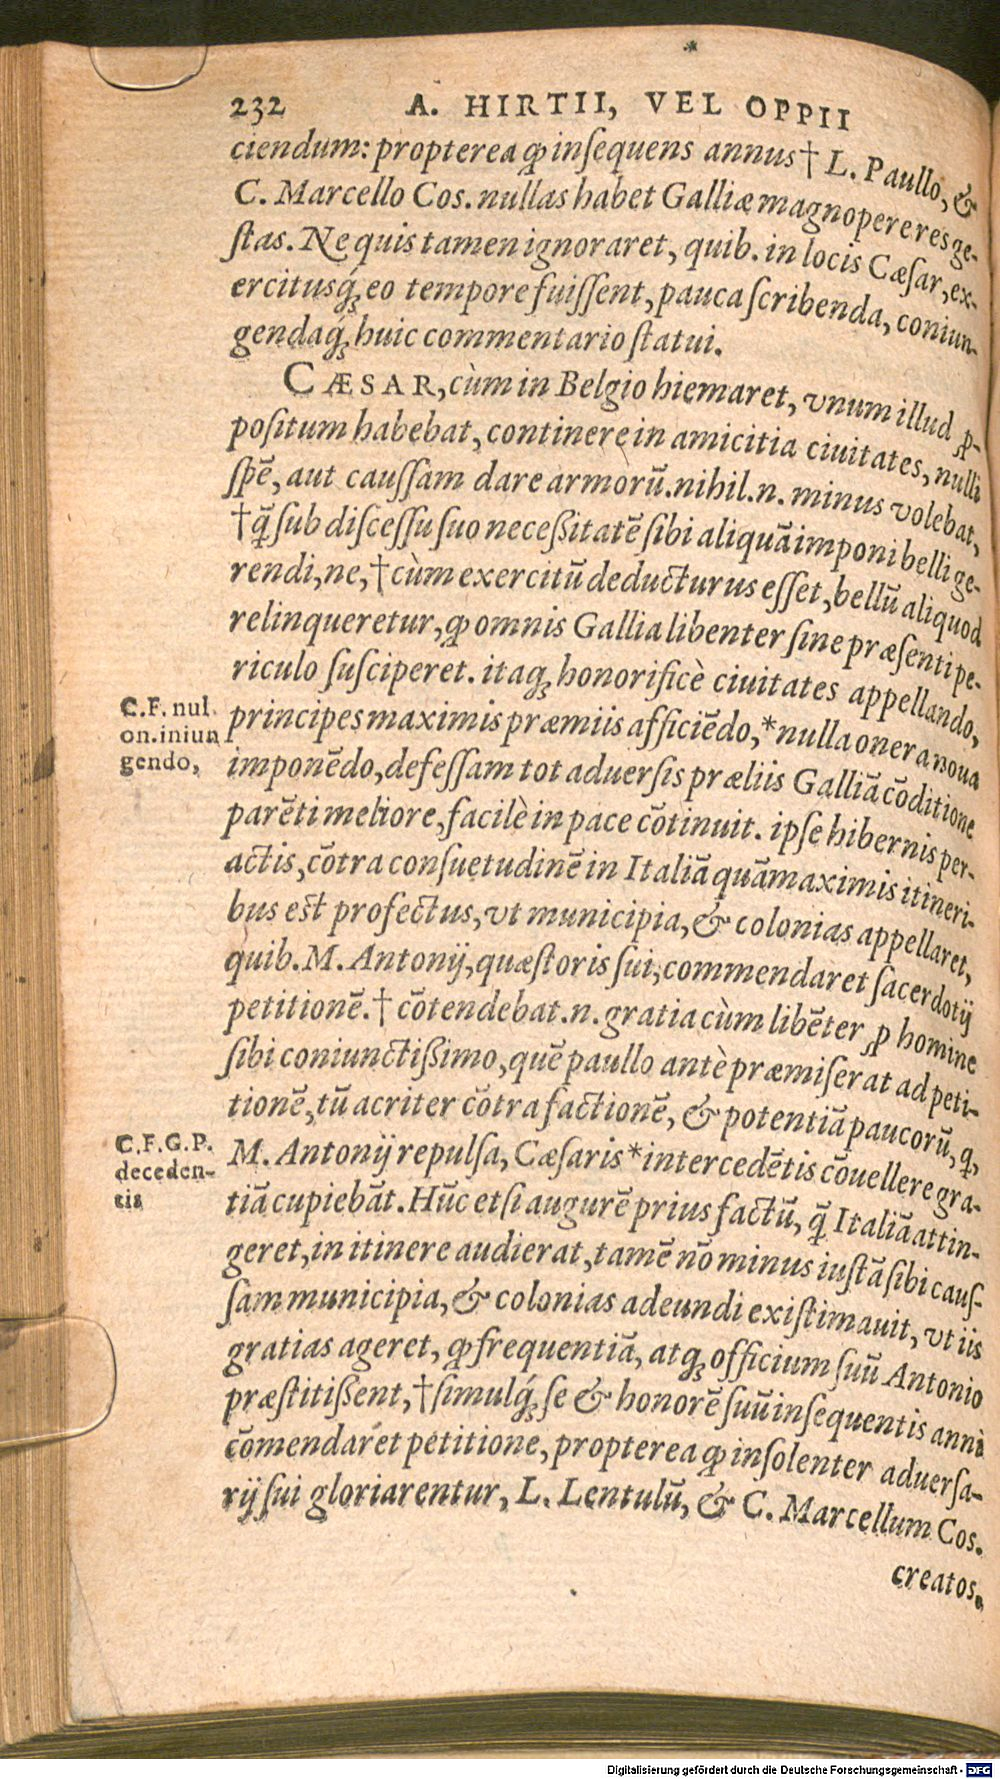 232 A. HIRTII, VEL OPPII
ciendum: propterea ꝙ inſequens annus † L. Paullo, &
C. Marcello Cos. nullas habet Galliæ magnopere res ge-
ſtas. Ne quis tamen ignoraret, quib. in locis Cæſar, ex-
ercitusq́ꝫ eo tempore fuiſſent, pauca ſcribenda, coniun-
gendaq́ꝫ huic commentario ſtatui.
CÆSAR, cùm in Belgio hiemaret, vnum illud ꝓ-
poſitum habebat, continere in amicitia ciuitates, nulli
ſpē, aut cauſſam dare armorū. nihil. n. minus volebat,
† ꝗ̃ ſub diſceſſu ſuo neceßitatē ſibi aliquā imponi belli ge-
rendi, ne, † cùm exercitū deducturus eſſet, bellū aliquod
relinqueretur, ꝙ omnis Gallia libenter ſine præſenti pe-
riculo ſuſciperet. itaqꝫ honorificè ciuitates appellando,
C.F. nul.
on. iniun
gendo,
principes maximis præmiis afficiēdo, * nulla onera noua
imponēdo, defeſſam tot aduerſis præliis Galliā cōditione
parēti meliore, facilè in pace cōtinuit. ipſe hibernis per-
actis, cōtra conſuetudinē in Italiā quā maximis itineri-
bus est profectus, vt municipia, & colonias appellaret,
quib. M. Antonij, quæſtoris ſui, commendaret ſacerdotij
petitionē. † cōtendebat. n. gratia cùm libēter ꝓ homine
ſibi coniunctißimo, quē paullo antè præmiſerat ad peti-
tionē, tū acriter cōtra factionē, & potentiā paucorū, q,
C.F.G.P.
deceden-
tis
M. Antonij repulſa, Cæſaris * intercedētis cōuellere gra-
tiā cupiebāt. Hūc etſi augurē prius factū, ꝗ̃ Italiā attin-
geret, in itinere audierat, tamē nō minus iuſtā ſibi cauſ-
ſam municipia, & colonias adeundi exiſtimauit, vt iis
gratias ageret, ꝙ frequentiā, atqꝫ officium ſuū Antonio
præſtitißent, † ſimulq́ꝫ ſe & honorē ſuū inſequentis anni
cōmendaret petitione, propterea ꝙ inſolenter aduerſa-
rij ſui gloriarentur, L. Lentulū, & C. Marcellum Cos.
creatos,
Digitalisierung gefördert durch die Deutsche Forschungsgemeinschaft - DFG